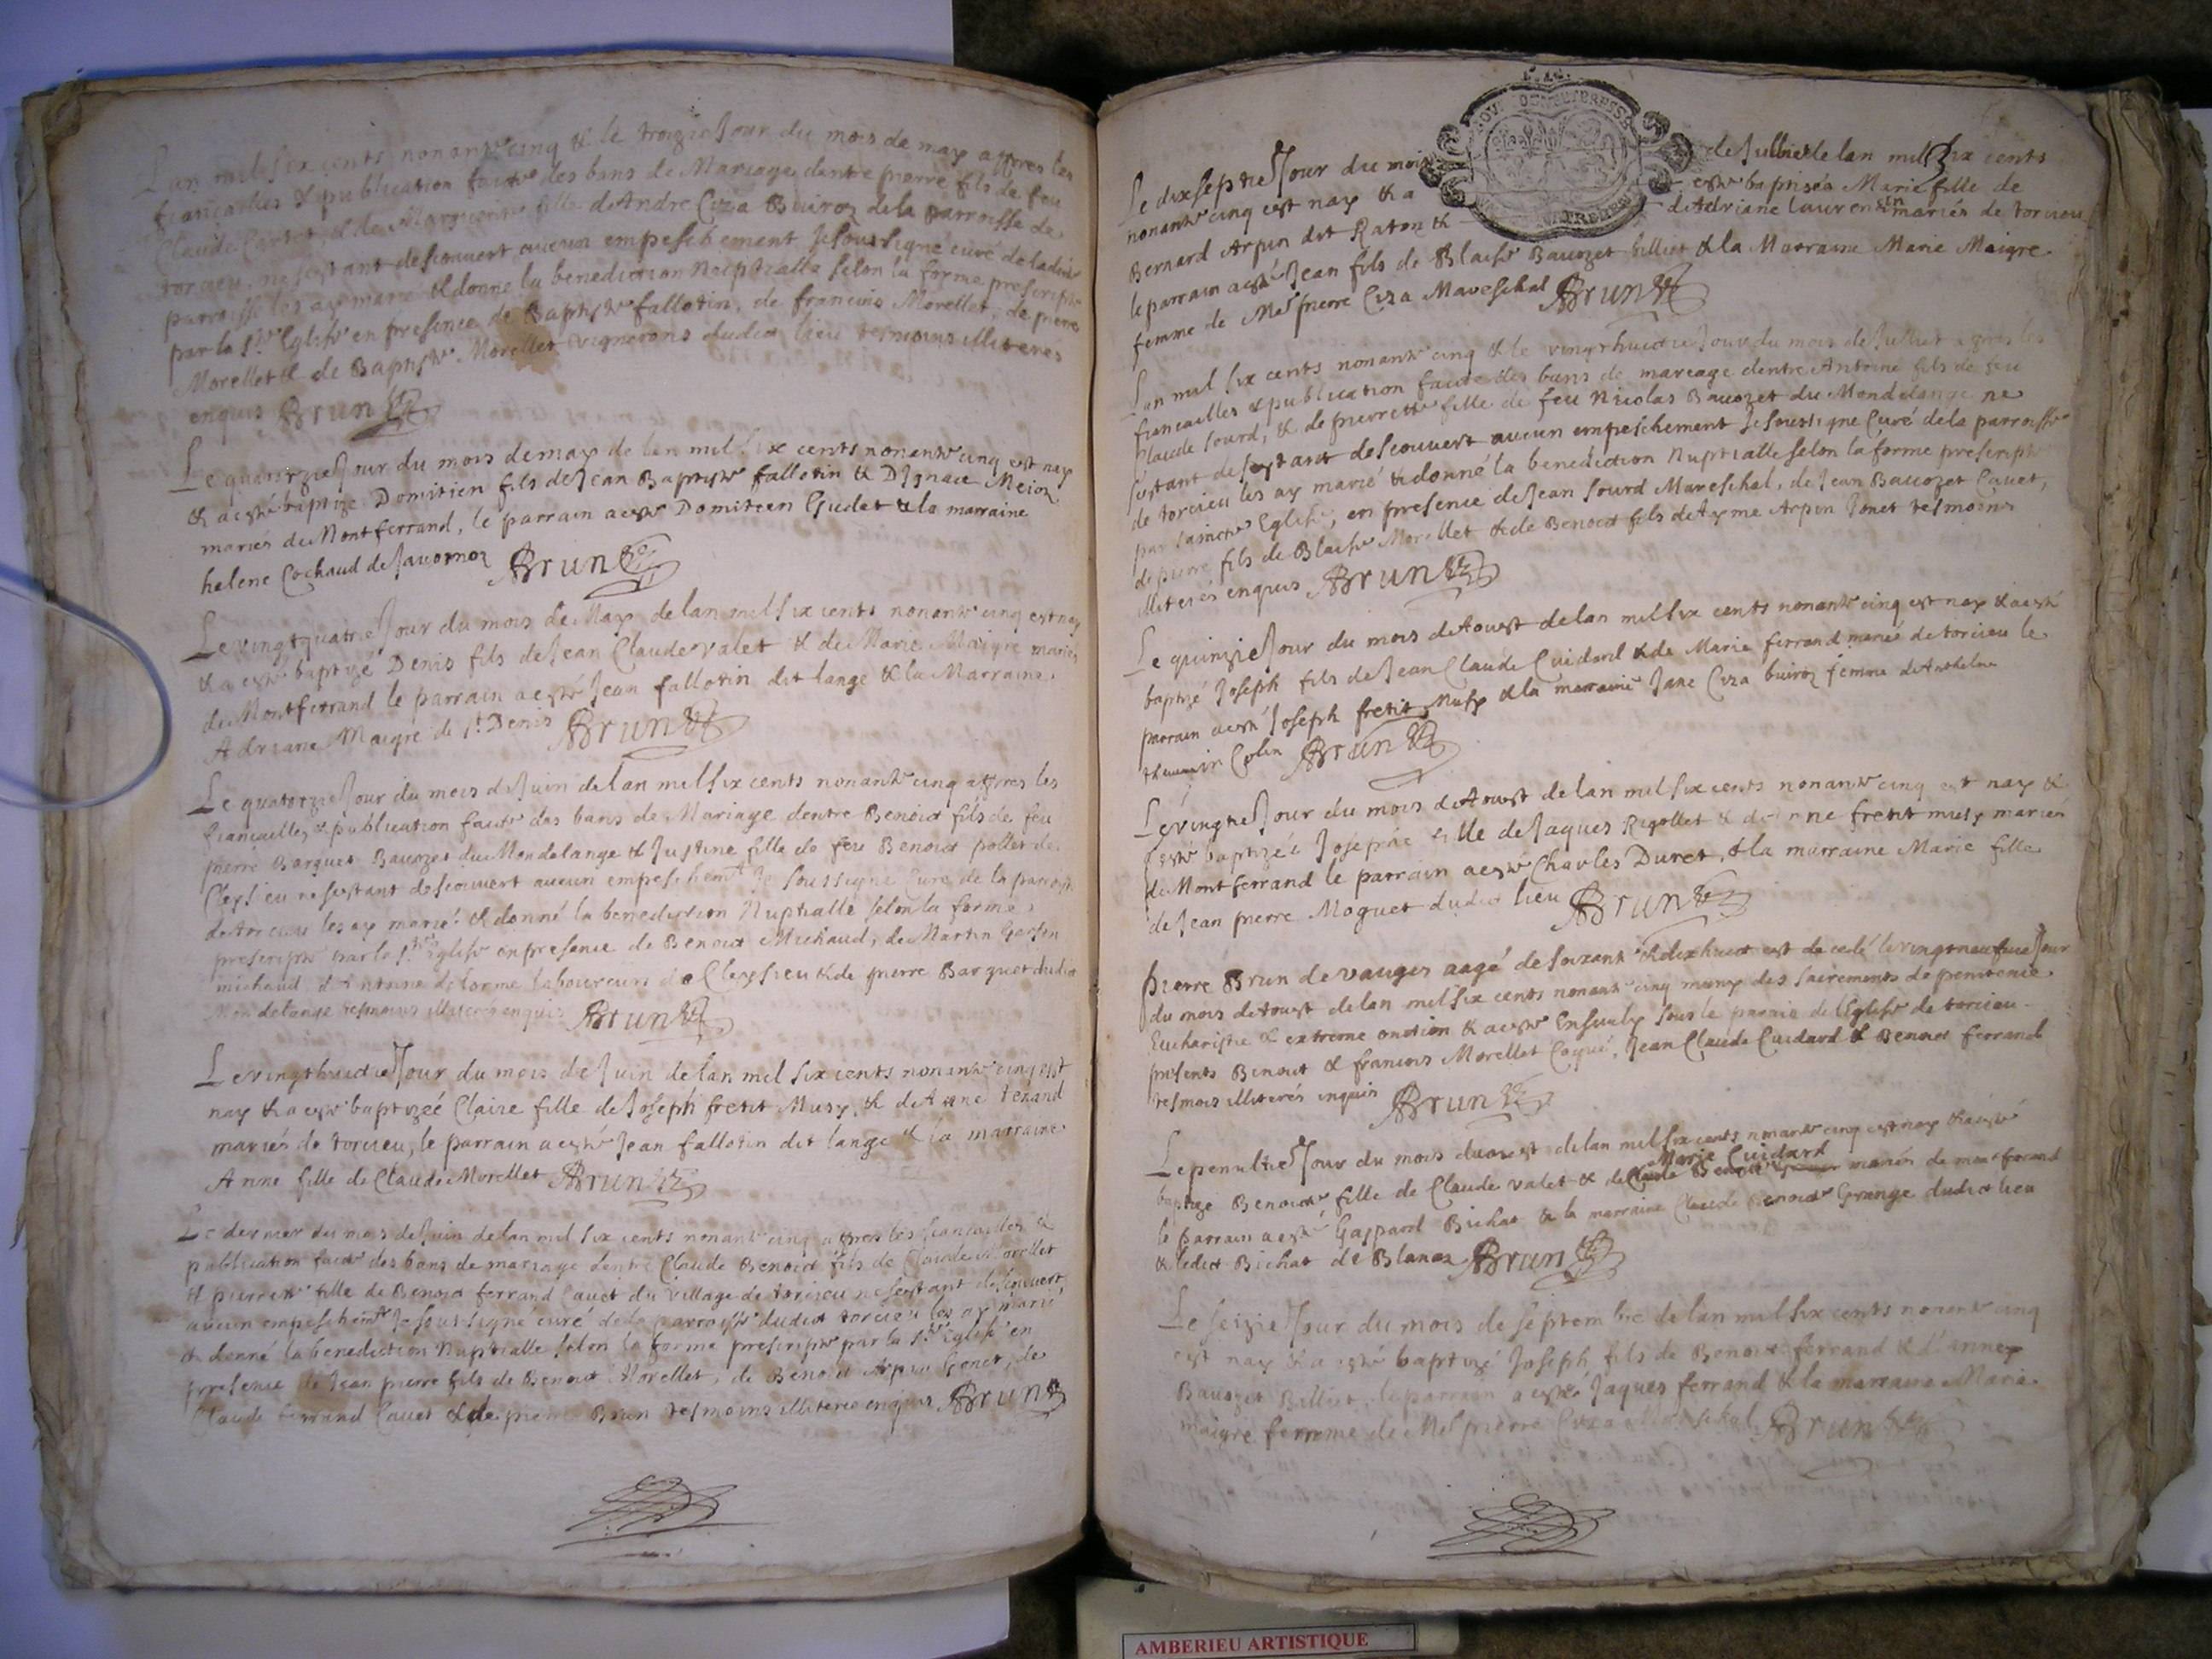 Lan mil six cents nonante cinq & le trezie Jour du mois de may apres les
fiancailles & publication faicte des bans de Mariage dentre pierre fils de feu
Claude Cartet, & de fille de Andre Ciza Buiroz de la parroisse de
torcieu, ne sestant descouvert aucun empeschement Je soussigné curé de ladite
parroisse les ay marié & donné la benediction Nuptialle selon la forme prescripte
par la Ste Eglise en presence de Baptiste fallotin, de francois Morellet, de pierre
Morellet & de Baptiste Morellet vignerons dudict lieu tesmoins illiterés
enquis Brun
Le jour du mois de may de lan mil six cents nonante cinq est nay
& a esté baptizé Domitien fils de Jean Baptiste fallotin & DIgnace Meioz
mariés de Montferrand, le parrain a esté Domitien Gudet & la marraine
helene Cochaud de Javornoz Brun
Le vingtquatrie Jour du mois de May de lan mil six cents nonante cinq est nay
& a esté baptizé Denis fils de Jean Claude valet & de Marie Maigre mariés
de Montferrand le parrain a esté Jean fallotin dit lange & la Marraine
Adriane Maigre de St Denis Brun
Le quatorzie Jour du mois de Juin de lan mil six cents nonante cinq apres les
fiancailles & publication faicte des bans de Mariage dentre Benoict fils de feu
pierre Barquet Bavozet du Mondelange & Justine fille de feu Benoict pollet de
Cleysieu ne sestant descouvert aucun empeschemt Je soussigné Curé de la parroisse
de torcieu les ay marié & donné la benediction Nuptialle selon la forme
prescripte par la Ste Eglise en presence de Benoict Michaud, de Martin
michaud d'Antoine delorme laboureurs de Cleysieu & de pierre Barquet dudict
Mondelange tesmoins illiterés enquis Brun
Le vingthuictie Jour du mois de Juin de lan mil six cents nonante cinq est
nay & a esté baptizeé Claire fille de Joseph fretit Musy, & de Anne ferrand
mariés de torcieu, le parrain a esté Jean fallotin dit lange & la marraine
Anne fille de Claude Morellet Brun
Le dernier du mois de Juin de lan mil six cents nonante cinq apres les fiancailles &
publication faicte des bans de mariage dentre Claude Benoict fils de Claude Morellet
& pierrette fille de Benoict ferrand Cauet du village de torcieu ne sestant descouvert
aucun empeschemt Je soussigné curé de la parroisse dudict torcieu les ay marié
& donné la benediction Nuptialle selon la forme prescripte par la Ste Eglise en
presence de Jean pierre fils de Benoict Morellet, de Benoict Arpin Gonet, de
Claude ferrand Cauet & de pierre Brun tesmoins illiterés enquis Brun
Le dixseptie Jour du mois de Juillet de lan mil six cents
nonante cinq est nay & a esté baptiseé Marie fille de
Bernard Arpin dit Raton & de Adriane laurencin mariés de torcieu
le parrain a esté Jean fils de Blaise Bavozet billiet & la Marraine Marie Maigre
femme de Me pierre Ciza Mareschal Brun
Lan mil six cents nonante cinq & le vingthuictie Jour du mois de Juillet apres les
fiancailles & publication faicte des bans de mareage dentre Antoine fils de feu
Claude sourd, & de pierrette fille de feu Nicolas Bavozet du Mondelange ne
sestant descouvert aucun empeschement Je soussigné Curé de la parroisse
de torcieu les ay marié & donné la benediction Nuptialle selon la forme prescripte
par saincte Eglise, en presence de Jean sourd Mareschal, de Jean Bavozet Cauet,
de pierre fils de Blaise Morellet & de Benoict fils de Ayme Arpin Jonet tesmoins
illiterés enquis Brun
Le quinzie Jour du mois de Aoust de lan mil six cents nonante cinq est nay & a esté
baptizé Joseph fils de Jean Claude Cuidard & de Marie ferrand mariés de torcieu le
parrain a esté Joseph fretit Musy & la marraine Jane Ciza buiroz femme de Anthelme
Colin Brun
Le vingtie Jour du mois de Aoust de lan mil six cents nonante cinq est nay &
esté baptizeé Josephe fille de Jaques Rigollet & de anne fretit musy mariés
de Montferrand le parrain a esté Charles Duret, & la marraine Marie fille
de Jean pierre Moguet dudict lieu Brun
Pierre Brun de vauges aagé de soixante & dixhuict est decedé le vingtneufvie Jour
du mois de Aoust de lan mil six cents nonante cinq muny des sacrements de penitence
Eucharistie & extreme onction & a esté Ensevely sous le parvis de lEglise de torcieu
presents Benoict & francois Morellet Coque, Jean Claude Cuidard & Benoict ferrand
tesmoins illiterés enquis Brun
Le penultie Jour du mois daoust de lan mil six cents nonante cinq est nay & a esté
Marie Cuidard
baptizé Benoicte fille de Claude valet & de mariés de montferrand
le parrain a esté Gaspard Bichat & la marraine Claude Benoicte Grange dudict lieu
& ledict Bichat de Blanaz Brun
Le seizie Jour du mois de septembre de lan mil six cents nonante cinq
est nay & a esté baptizé Joseph fils de Benoict ferrand & d'anney
Bavozet Billiet, le parrain a esté Jaques ferrand & la marraine Marie
maigre femme de Me pierre Ciza Mareschal Brun
AMBERIEU ARTISTIQUE